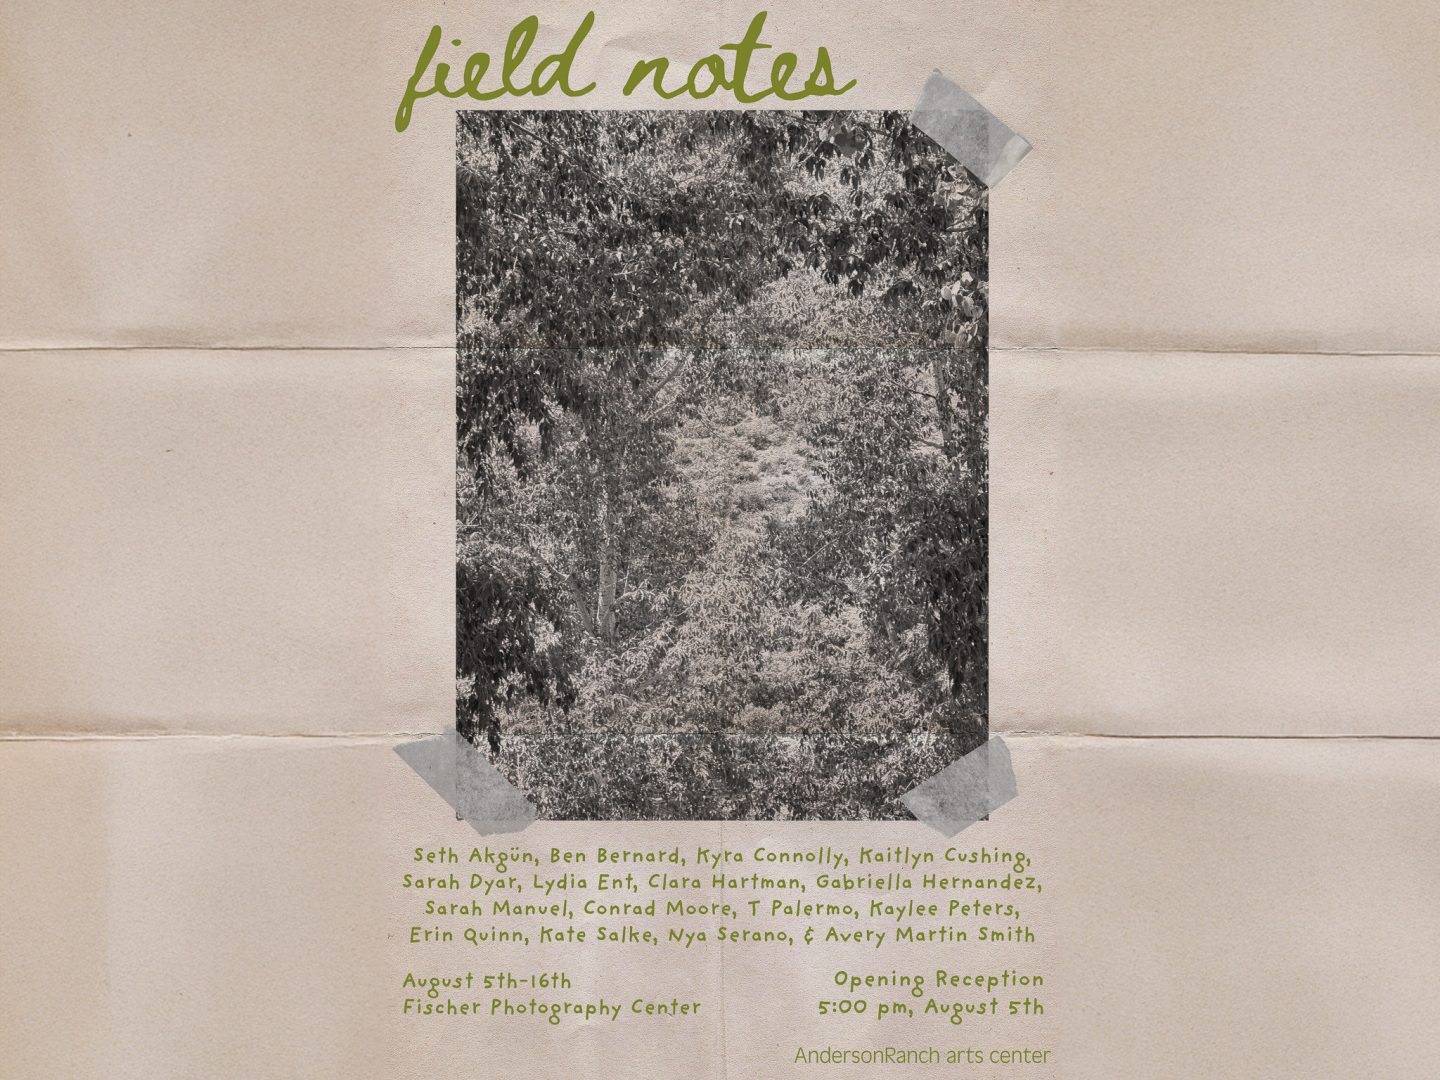 field notes
Seth Akgün, Ben Bernard, Kyra Connolly, Kaitlyn Cushing,
Sarah Dyar, Lydia Ent, Clara Hartman, Gabriella Hernandez,
Sarah Manuel, Conrad Moore, T Palermo, Kaylee Peters,
Erin Quinn, Kate Salke, Nya Serano, & Avery Martin Smith
August 5th-16th
Fischer Photography Center
Opening Reception
5:00 pm, August 5th
AndersonRanch arts center